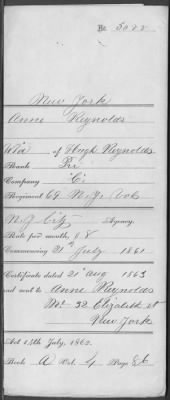 New York
Anne Reynolds
Wid of Hugh Reynolds
Rank Pri
Company "C"
Regiment 69 N.Y. Vols
N.Y. City Agency.
Rate per month, $8
Commencing 21st July 1861
Certificate dated 21 Aug 1863
and sent to Anne Reynolds
No 32 Elizabeth St
New York
Act 14th July, 1862.
Book A Vol. 4 Page 86